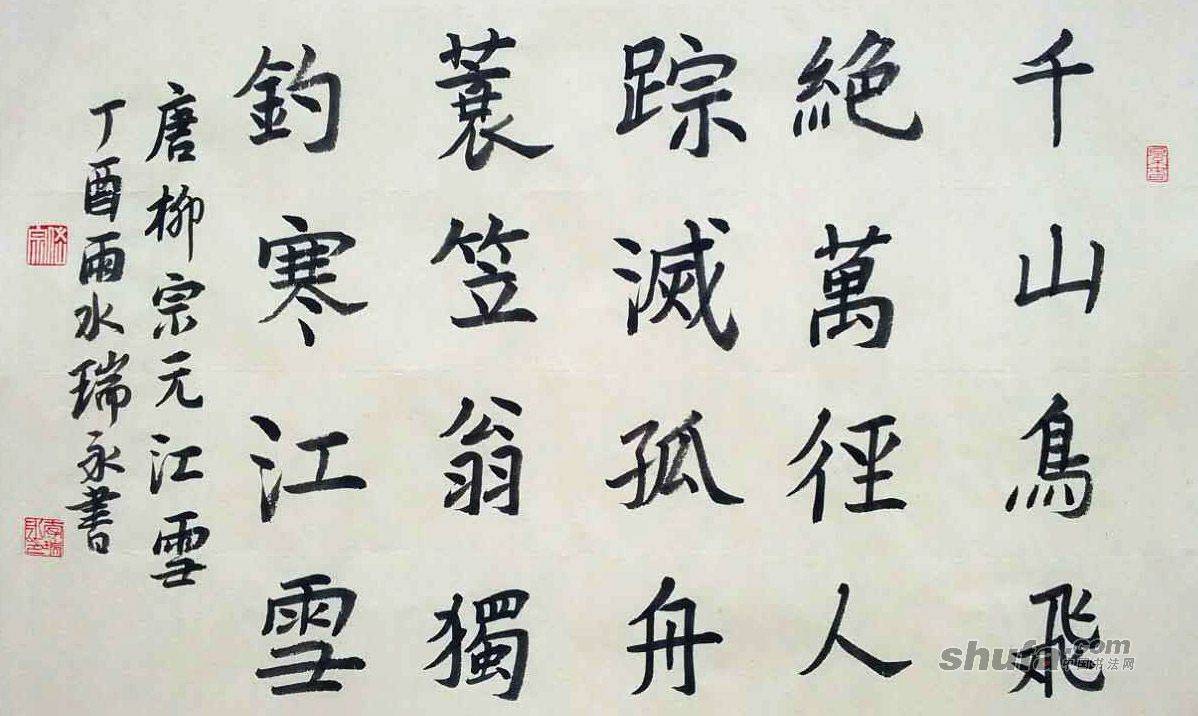 千山鳥飛
絶萬徑人
踪滅孤舟
蓑笠翁獨
釣寒江雪
唐柳宗元江雪
丁酉雨水瑞永書
shufa.com
中国书法网